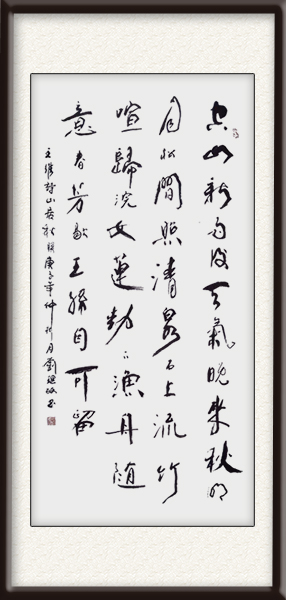 空山新雨後天氣晚來秋明
月松間照清泉石上流竹
喧歸浣女蓮動下漁舟隨
意春芳歇王孫自可留
王維詩山居秋暝庚子年仲秋月劉書